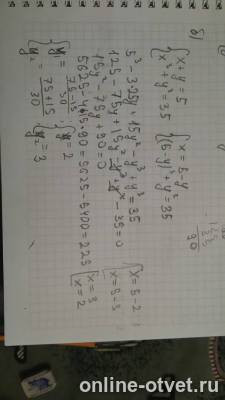 б)
{x+y=5
x³+y³=35
{x=5-y
(5-y)³+y³=35
5³-3·25y+15y²-y³+y³=35
125-75y+15y²-y³+y³-35=0
15y²-75y+90=0
5625-4·15·90=5625-5400=225
{y₁=75-15/30
y₂=75+15/30
{y=2
y=3
[x=5-2
x=5-3
[x=3
x=2
90
online-otvet.ru